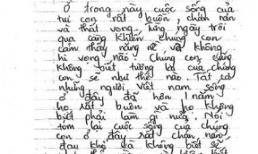 Ở trong này cuộc sống của
tụi con rất buồn, chán nản
và thất vọng, từng ngày trôi
qua càng khiến chúng con
cảm thấy nặng nề và không
hi vọng nào. Chúng con cũng
không biết tương lai của chúng
con sẽ như thế nào. Tất cả
những người Việt nam sống
ở đây đã hơn 1 năm
họ rất buồn và họ không
biết phải làm gì nữa. Nói
tóm lại cuộc sống của chúng
con ở đây rất chán nản
đau khổ và không biết sẽ